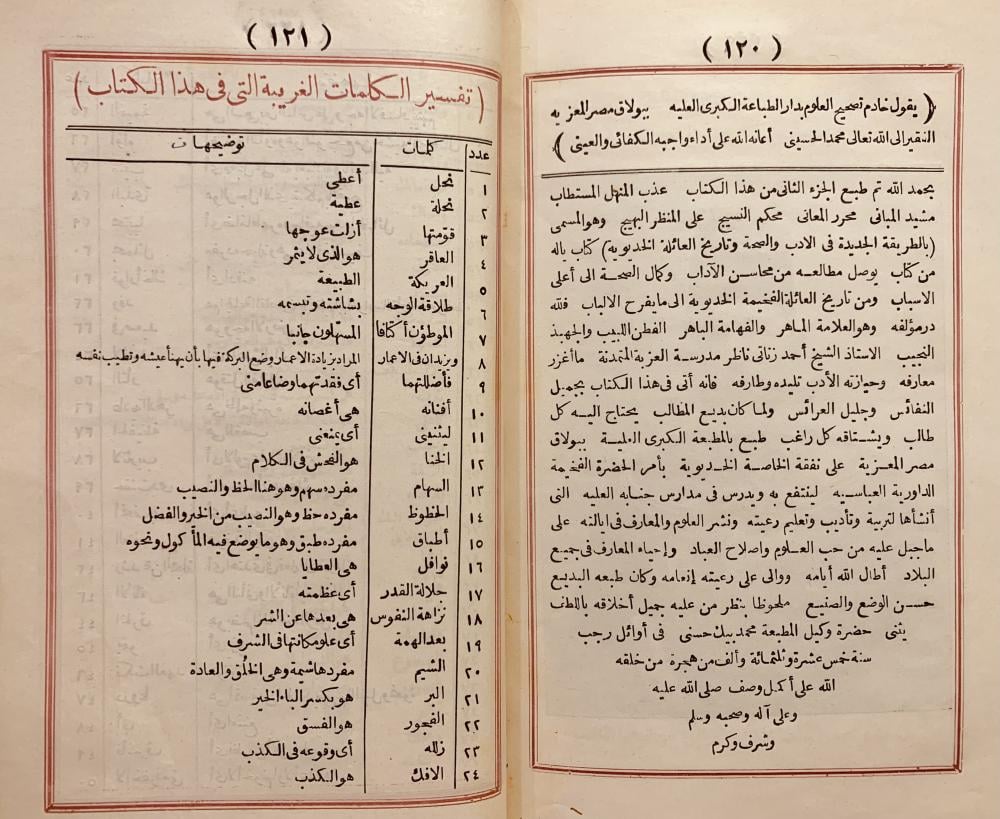 (١٢٠)
﴿ يقول خادم تصحيح العلوم بدار الطباعة الكبرى العليه ببولاق مصر المعزيه
الفقير الى الله تعالى محمد الحسينى أعانه الله على أداء واجبه الكفائى والعينى ﴾
بحمد الله تم طبع الجزء الثانى من هذا الكتاب عذب المنهل المستطاب
مشيد المبانى محرر المعانى محكم النسيج على المنظر البهيج وهو المسمى
(بالطريقة الجديدة فى الادب والصحة وتاريخ العائلة الخديوية) كتاب ياله
من كتاب يوصل مطالعه من محاسن الآداب وكمال الصحة الى أعلى
الاسباب ومن تاريخ العائلة الفخيمة الخديوية الى ما يفرح الالباب فلله
در مؤلفه وهو العلامة الماهر والفهامة الباهر الفطن اللبيب والجهبذ
النجيب الاستاذ الشيخ أحمد زناتى ناظر مدرسة العزبة المتمدنة ما أغزر
معارفه وحيازته الأدب تليده وطارفه فانه أتى فى هذا الكتاب بجميل
النفائس وجليل العرائس ولما كان بديع المطالب يحتاج اليه كل
طالب ويشتاقه كل راغب طبع بالمطبعة الكبرى العلية ببولاق
مصر المعزية على نفقة الخاصة الخديوية بأمر الحضرة الفخيمة
الداورية العباسيه لينتفع به ويدرس فى مدارس جنابه العليه التى
أنشأها لتربية وتأديب وتعليم رعيته ونشر العلوم والمعارف فى ايالته على
ماجبل عليه من حب العلوم واصلاح العباد وإحياء المعارف فى جميع
البلاد أطال الله أيامه ووالى على رعيته إنعامه وكان طبعه البديع
حسن الوضع والصنيع ملحوظا بنظر من عليه جميل أخلاقه باللطف
يثنى حضرة وكيل المطبعة محمد بيك حسنى فى أوائل رجب
سنة خمس عشرة وثلثمائة وألف من هجرة من خلقه
الله على أكمل وصف صلى الله عليه
وعلى آله وصحبه وسلم
وشرف وكرم
(١٢١)
( تفسير الكلمات الغريبة التى فى هذا الكتاب )
عدد كلمات توضيحات
١ نحل أعطى
٢ نحلة عطية
٣ قومتها أزلت عوجها
٤ العاقر هو الذى لايثمر
٥ العريكة الطبيعة
٦ طلاقة الوجه بشاشته وتبسمه
٧ الموطؤن أكنافا المستهاون جانبا
٨ ويزيدان فى الاعمار المراد بزيادة الاعمار وضع البركة فيها بأن يهنأ عيشه وتطيب نفسه
٩ فأضللتهما أى فقدتهما وضاعا منى
١٠ أفنانه هى أغصانه
١١ ليثنينى أى يمنعنى
١٢ الخنا هو الفحش فى الكلام
١٣ السهام مفرده سهم وهو هنا الحظ والنصيب
١٤ الحظوظ مفرده حظ وهو النصيب من الخير والفضل
١٥ أطباق مفرده طبق وهو مايوضع فيه المأكول ونحوه
١٦ نوافل هى العطايا
١٧ جلالة القدر أى عظمته
١٨ نزاهة النفوس هى بعدها عن الشر
١٩ بعد الهمة أى علو مكانتها فى الشرف
٢٠ الشيم مفردها شيمة وهى الخلُق والعادة
٢١ البر هو بكسر الباء الخير
٢٢ الفجور هو الفسق
٢٣ زلله أى وقوعه فى الكذب
٢٤ الافك هو الكذب